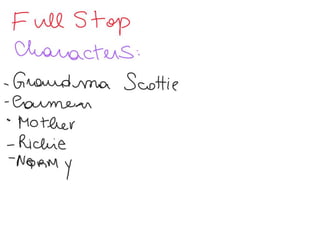 Full Stop
Characters:
- Grandma Scottie
- Carmen
• Mother
- Richie
- Normy